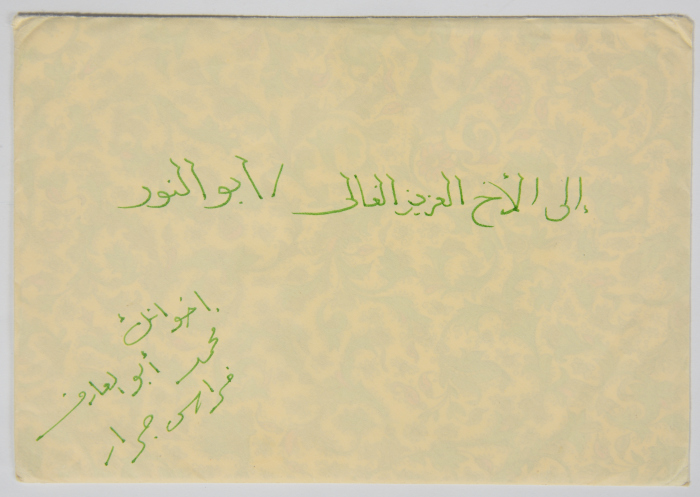 إلى الأخ العزيز الغالي / أبو النور
اخوانك
محمد أبو العارف
فراس جرار